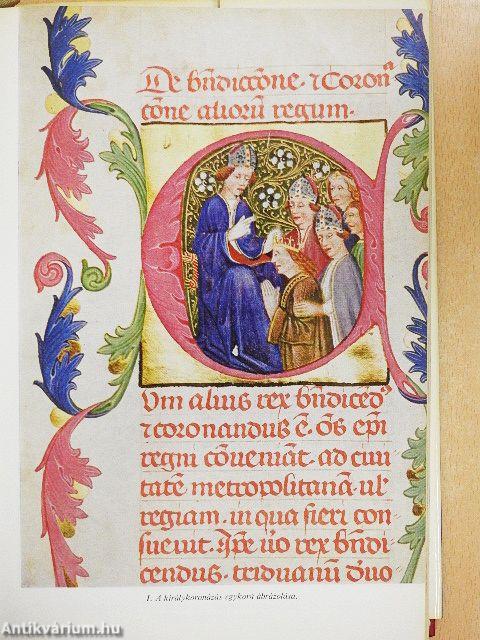 De bn̄diccōne · ⁊ Coronᵃ
cōne alioru̅ regum ·
Vm aliuis rex bn̄diced᷒
⁊ coronandus ē. oēs ep̄i
regni cōueniāt · ad ciui
tatē metropolitanā · ul᷑
regiam · in qua fieri con
sueuit · Ip̄e u̅o rex bn̄di
cendus · triduanū duo
1. A királykoronázás egykorú ábrázolása.
Antikvárium.hu